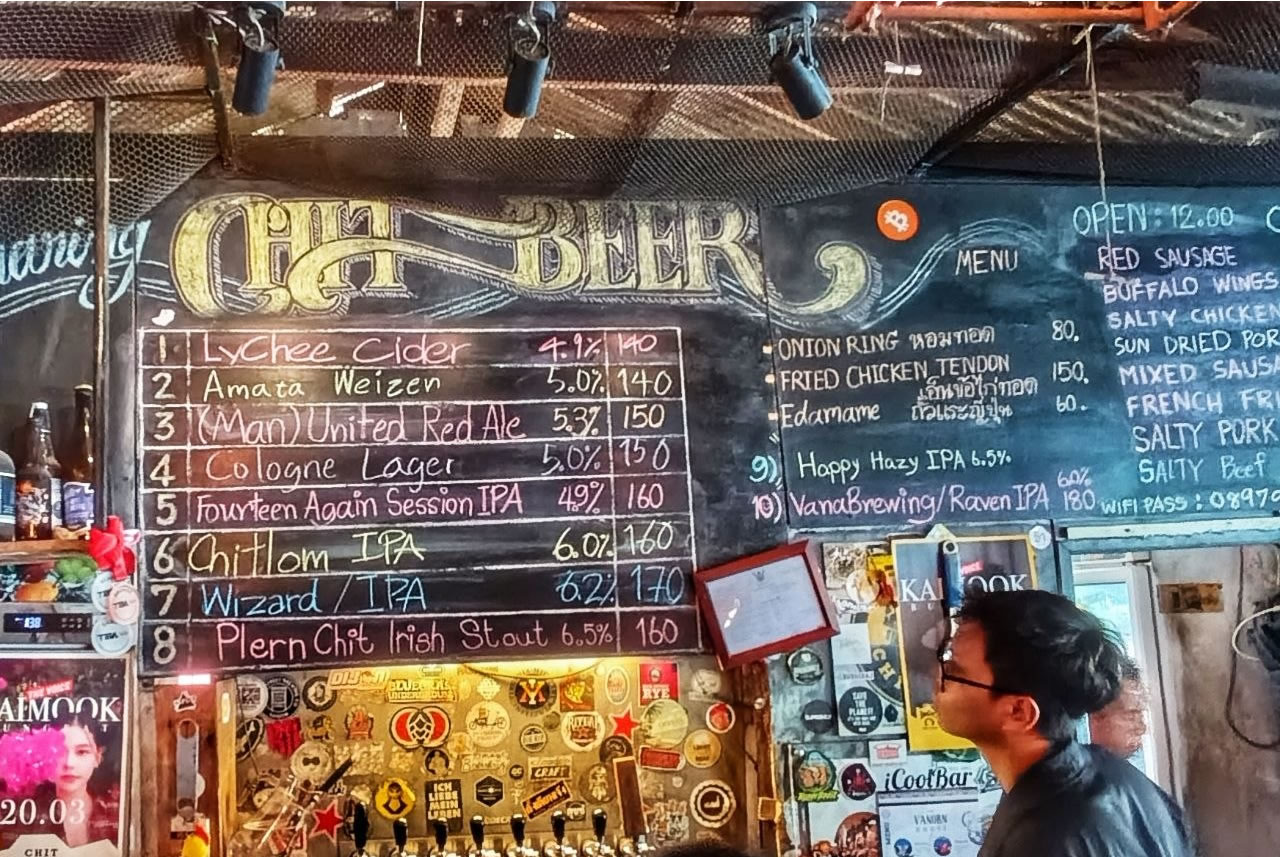 CHIT BEER
1 Lychee Cider 4.9% 140
2 Amata Weizen 5.0% 140
3 (Man) United Red Ale 5.3% 150
4 Cologne Lager 5.0% 150
5 Fourteen Again Session IPA 4.9% 160
6 Chitlom IPA 6.0% 160
7 Wizard / IPA 6.2% 170
8 Plern Chit Irish Stout 6.5% 160
MENU
ONION RING หอมทอด 80.
FRIED CHICKEN TENDON 150.
เอ็นข้อไก่ทอด
Edamame ถั่วแระญี่ปุ่น 60.
9) Happy Hazy IPA 6.5%
10) Vana Brewing/Raven IPA 6.0% 180
OPEN: 12.00
RED SAUSAGE
BUFFALO WINGS
SALTY CHICKEN
SUN DRIED POR
MIXED SAUSA
FRENCH FRI
SALTY PORK
SALTY Beef
WIFI PASS: 0897
AIMOOK
20.03
CHIT
KA OOK
RYE
CRAFT
ICH
LIEBE
MEIN
LEBEN
SAVE
THE
PLANET!
iCoolBar
VANORN